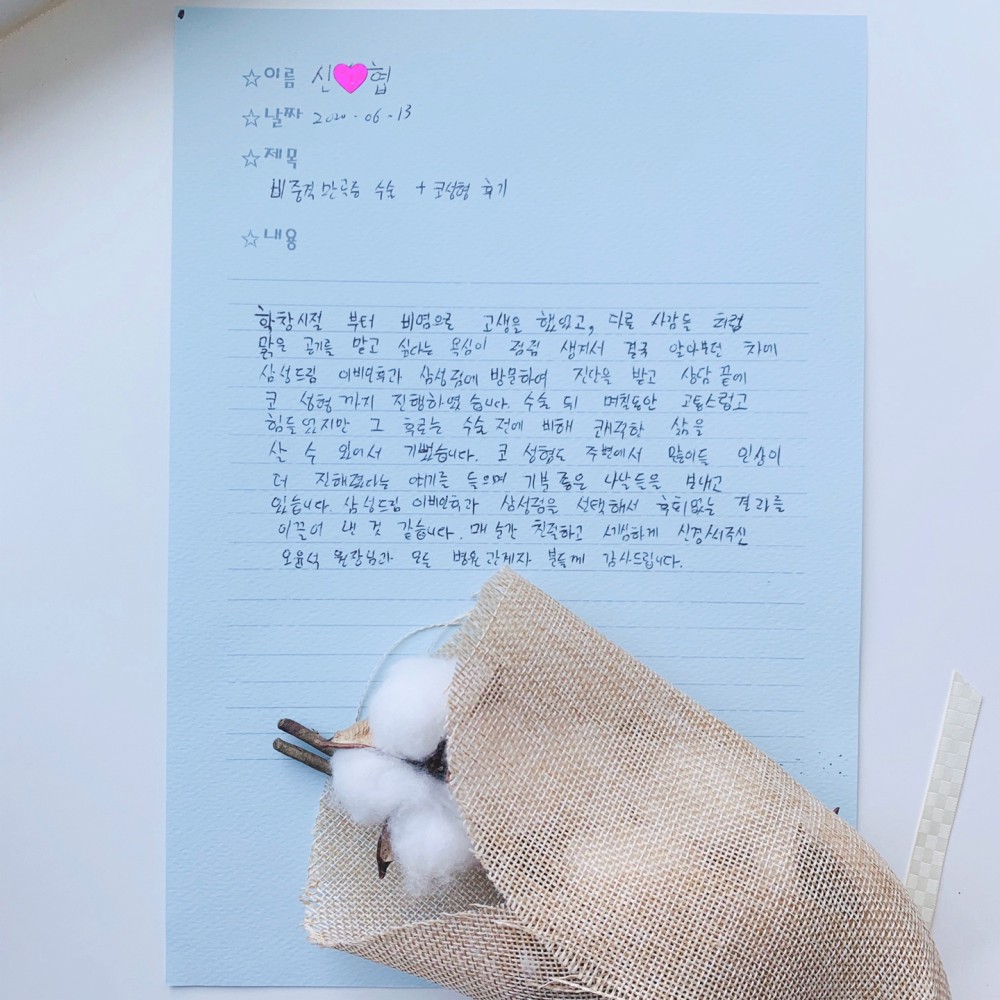 ☆이름 신♥협
☆날짜 2020-06-13
☆제목
비중격만곡증 수술 + 코성형 후기
☆내용
학창시절 부터 비염으로 고생을 했었고, 다른 사람들 처럼
맑은 공기를 맡고 싶다는 욕심이 점점 생겨서 결국 알아보던 차에
삼성드림 이비인후과 삼성점에 방문하여 진단을 받고 상담 끝에
코 성형까지 진행하였습니다. 수술 뒤 며칠동안 고통스럽고
힘들었지만 그 후로는 수술 전에 비해 쾌적한 삶을
살 수 있어서 기뻤습니다. 코 성형도 주변에서 많이들 인상이
더 진해졌다는 얘기를 들으며 기분 좋은 나날들을 보내고
있습니다. 삼성드림 이비인후과 삼성점을 선택해서 후회없는 결과를
이끌어 낸 것 같습니다. 매 순간 친절하고 세심하게 신경써주신
오윤석 원장님과 모든 병원관계자 분들께 감사드립니다.